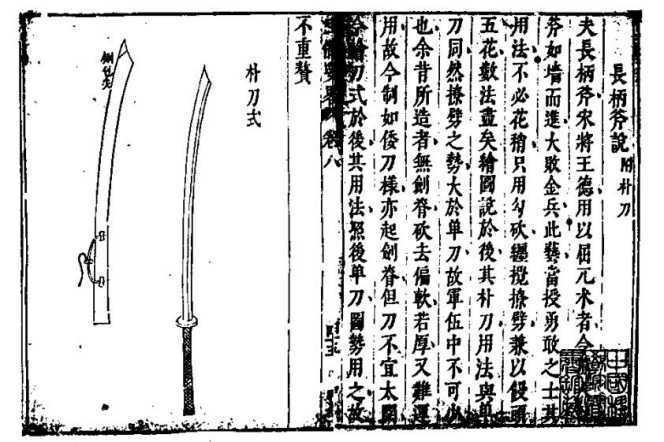 長柄斧說 附朴刀
夫長柄斧宋將王德用以屈兀术者令
斧如墻而進大敗金兵此藝當授勇敢之士其
用法不必花稍只用勾砍纏攪撩劈兼以頭
五花數法盡矣繪圖說於後其朴刀用法與單
刀同然撩劈之勢大於单刀故軍伍中不可少
也余昔所造者無劍脊砍去偏軟若厚又難運
用故今制如倭刀樣亦起劍脊但刀不宜太闊
余繪刀式於後其用法照後单刀圖勢用之故
武備要略 卷八
不重贅
朴刀式
銅包尖